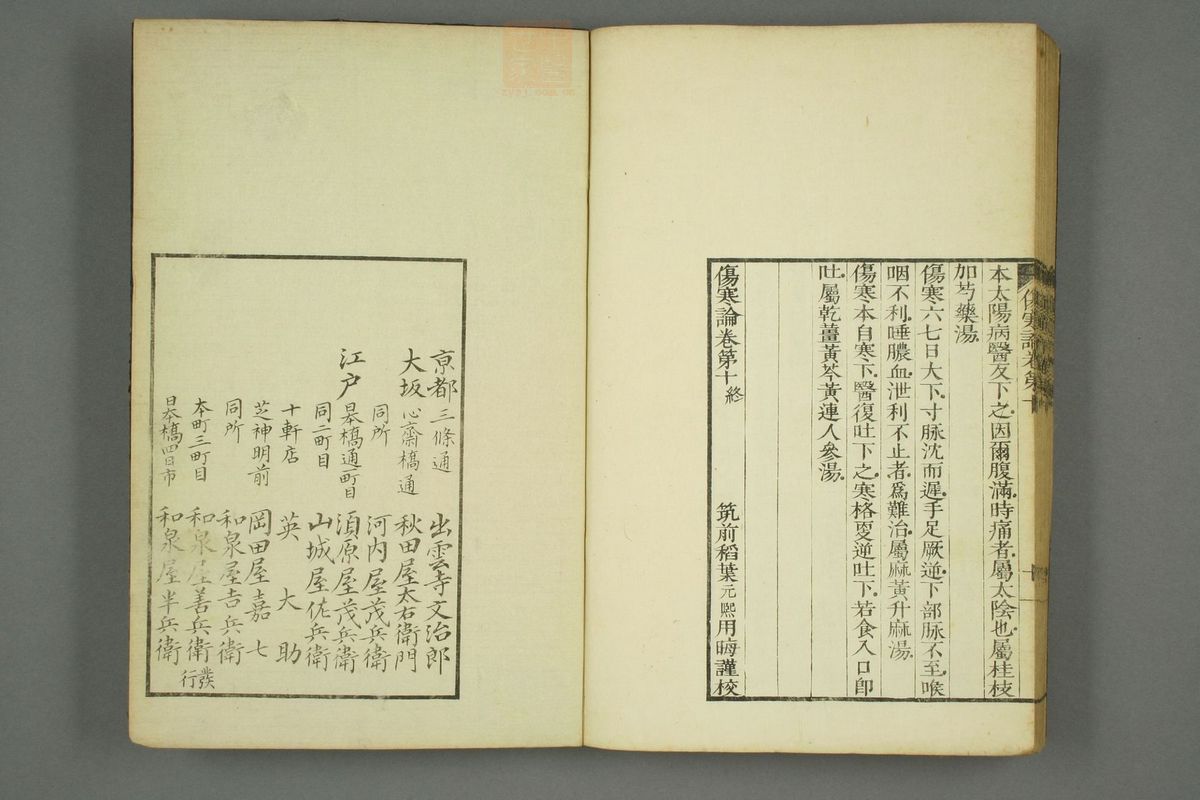 本太陽病醫反下之因爾腹滿時痛者屬太陰也屬桂枝
加芍藥湯
傷寒六七日大下寸脉沈而遲手足厥逆下部脉不至喉
咽不利唾膿血泄利不止者爲難治屬麻黃升麻湯
傷寒本自寒下醫復吐下之寒格更逆吐下若食入口卽
吐屬乾薑黃芩黃連人參湯
傷寒論卷第十終 筑前稻葉元熙用晦謹校
京都 三條通 出雲寺文治郎
大坂 心齋橋通 秋田屋太右衛門
同所 河内屋茂兵衛
江戸 日本橋通一町目 須原屋茂兵衛
同二町目 山城屋佐兵衛
十軒店 英大助
芝神明前 岡田屋嘉七
同所 和泉屋吉兵衛
本町三町目 和泉屋善兵衛 發行
日本橋四日市 和泉屋半兵衛
傷寒論卷第十